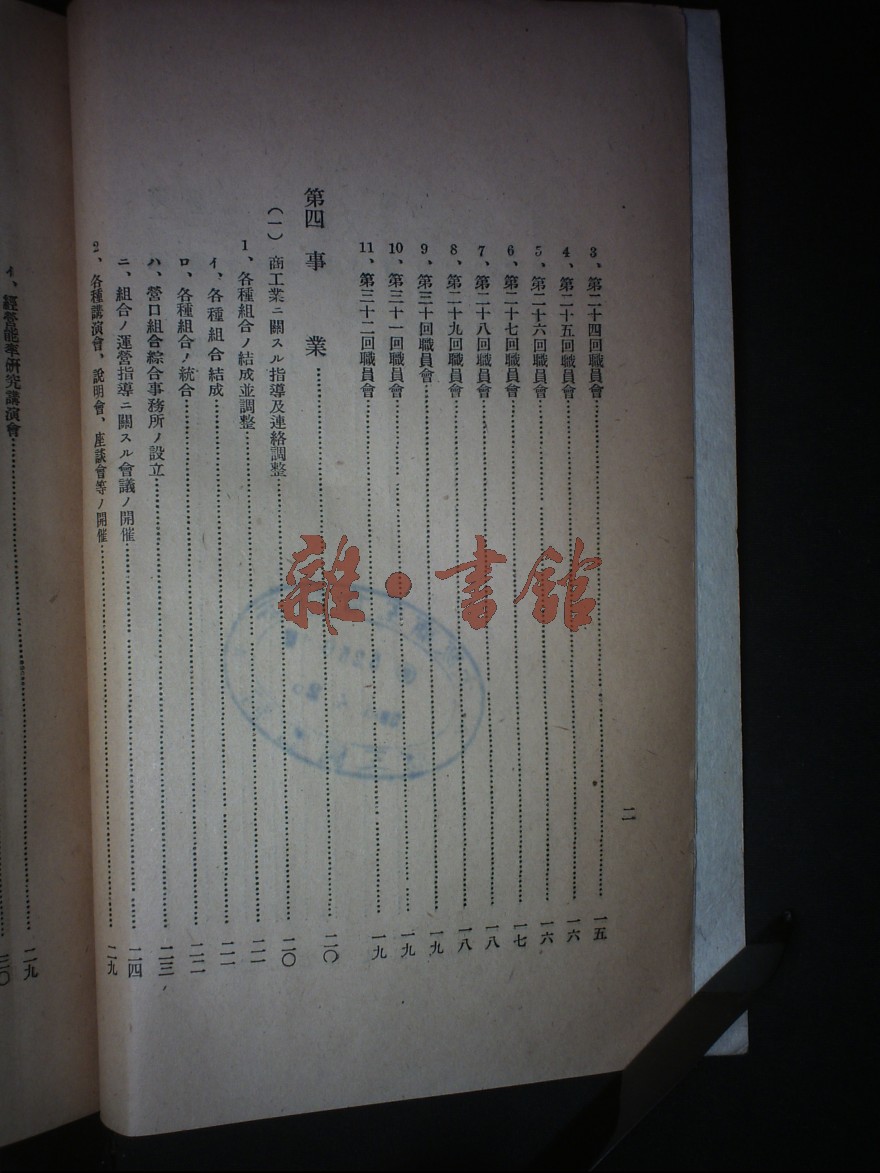 二
3、第二十四回職員會……一五
4、第二十五回職員會……一六
5、第二十六回職員會……一六
6、第二十七回職員會……一七
7、第二十八回職員會……一八
8、第二十九回職員會……一八
9、第三十回職員會……一九
10、第三十一回職員會……一九
11、第三十二回職員會……一九
第四 事 業……二〇
(一) 商工業ニ關スル指導及連絡調整……二〇
1、各種組合ノ結成並調整……二一
イ、各種組合結成……二一
ロ、各種組合ノ統合……二二
ハ、營口組合綜合事務所ノ設立……二三
ニ、組合ノ運營指導ニ關スル會議ノ開催……二四
2、各種講演會、說明會、座談會等ノ開催……二九
イ、經營能率研究講演會……二九
三〇
雜·書館